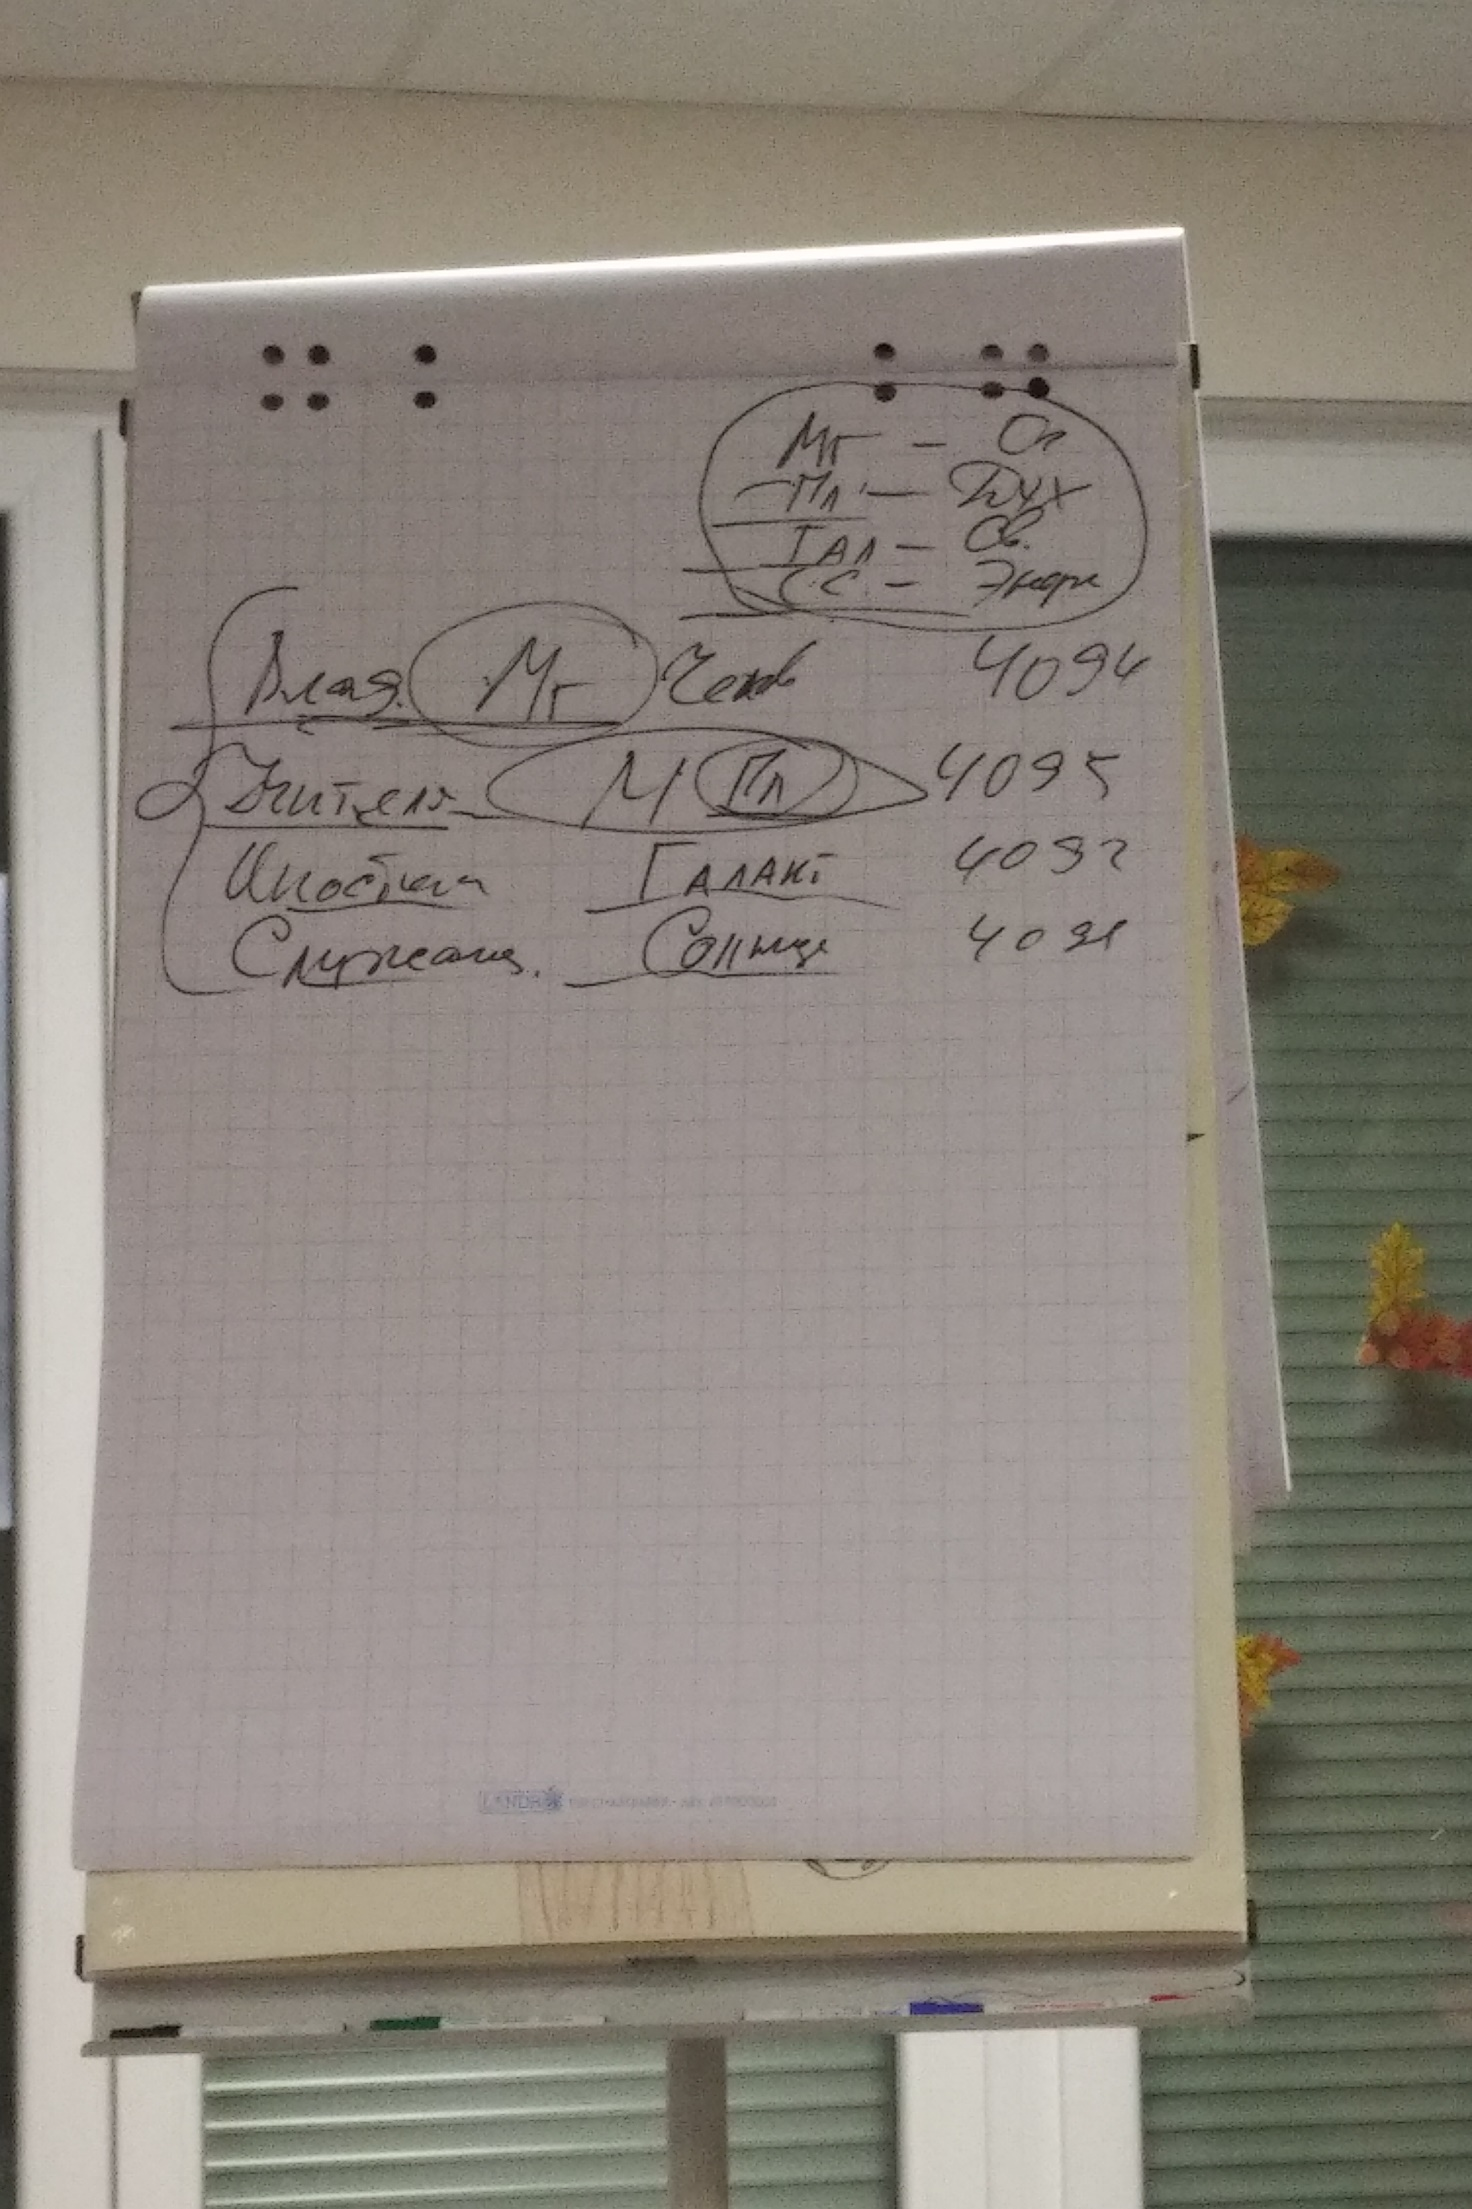 Мг — Ог
Пл — Дух
Гал — Св.
С.С. — Энерг
Влад. Мг Челов 4094
Учителя М Пл 4095
Ипостаси Галакт 4092
Служащ. Солнце 4091
LANDR